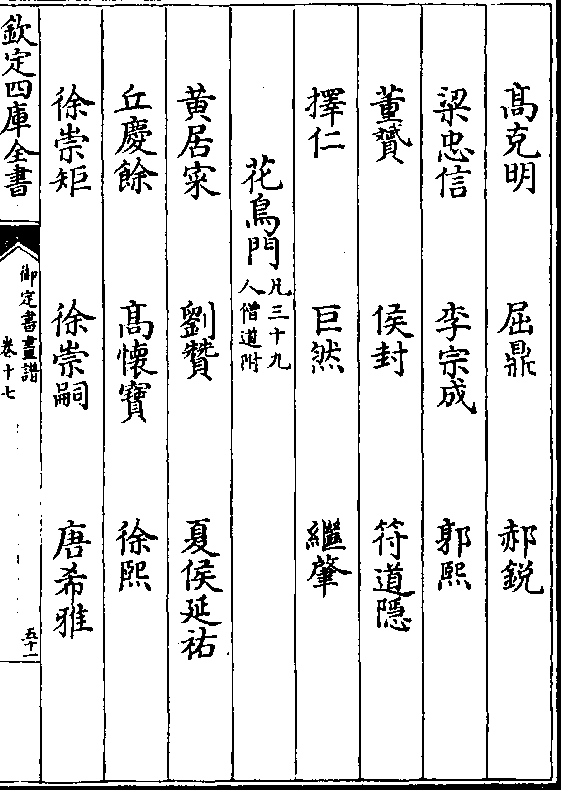 髙克明　屈鼎　郝銳
梁忠信　李宗成　郭熙
董贇　侯封　符道隱
擇仁　巨然　繼肇
花鳥門凡三十九人僧道附
黃居寀　劉贊　夏侯延祐
丘慶餘　髙懷寶　徐熙
徐崇矩　徐崇嗣　唐希雅
欽定四庫全書　御定書畫譜　卷十七　五十一